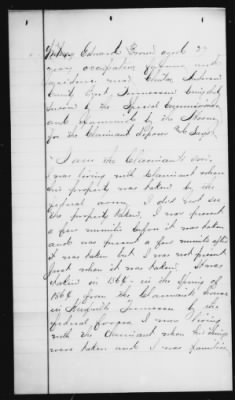 Edward Brown aged 27
years occupation farmer and
residence near Clinton Anderson
County East Tennessee being duly
sworn by the Special Commissioner
and examined by the Attorney
for the Claimant deposes and says
"I am the Claimants son.
I was living with Claimant when
his property was taken by the
federal army. I did not see
the property taken. I was present
a few minutes before it was taken
and was present a few minutes after
it was taken but I was not present
just when it was taken. It was
taken in 1864 in the Spring of
1864 from the Claimants house
in Tennessee by the
federal forces. I was living
with the Claimant when his things
were taken and I was familiar